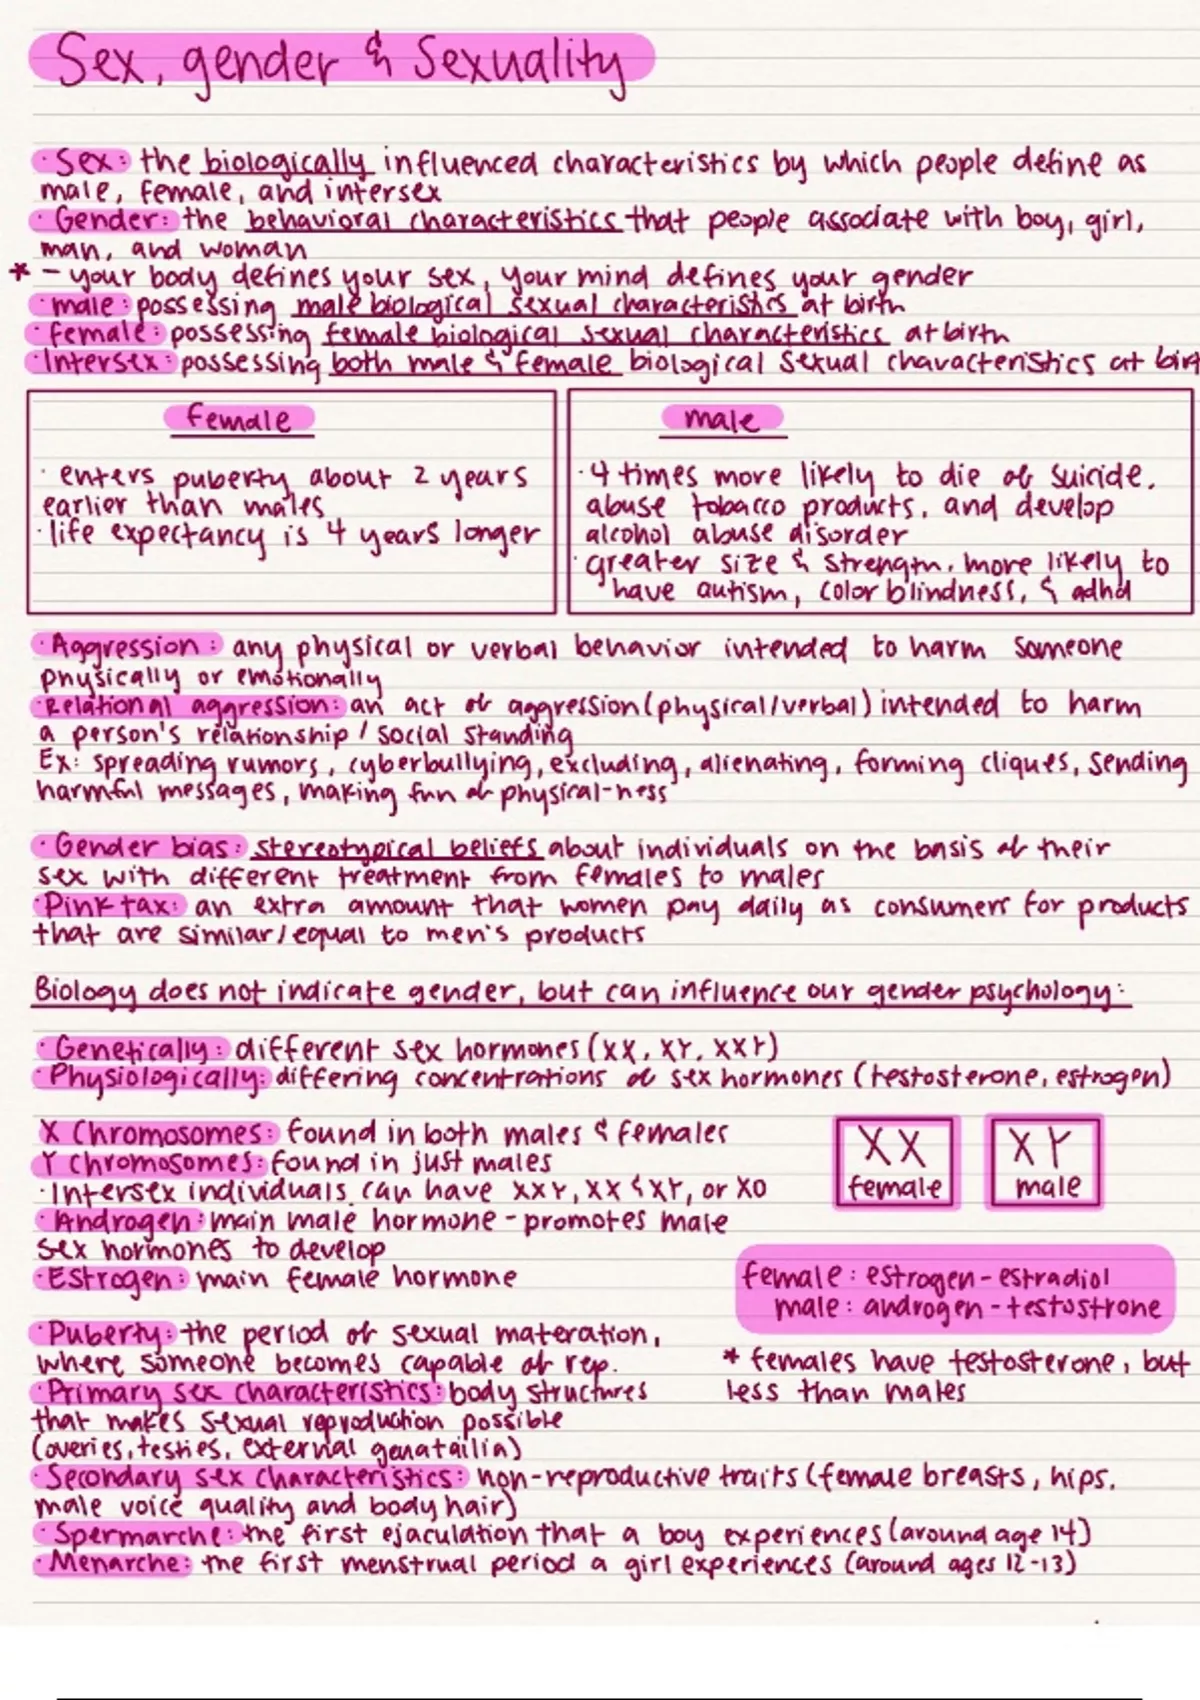 Sex, gender & Sexuality
· Sex: the biologically influenced characteristics by which people define as
male, female, and intersex
· Gender: the behavioral characteristics that people associate with boy, girl,
man, and woman
* - your body defines your sex, your mind defines your gender
· male: possessing male biological sexual characteristics at birth
· female: possessing female biological sexual characteristics at birth
· Intersex: possessing both male & female biological sexual characteristics at birt
female
· enters puberty about 2 years
earlier than males
· life expectancy is 4 years longer
male
· 4 times more likely to die of suicide,
abuse tobacco products, and develop
alcohol abuse disorder
· greater size & strength, more likely to
have autism, color blindness, & adhd
· Aggression: any physical or verbal behavior intended to harm someone
physically or emotionally
· Relational aggression: an act of aggression (physical/verbal) intended to harm
a person's relationship / social standing
Ex: spreading rumors, cyberbullying, excluding, alienating, forming cliques, sending
harmful messages, making fun of physical-ness
· Gender bias: stereotypical beliefs about individuals on the basis of their
sex with different treatment from females to males
· Pink tax: an extra amount that women pay daily as consumers for products
that are similar/equal to men's products
Biology does not indicate gender, but can influence our gender psychology:
· Genetically: different sex hormones (XX, XY, XXY)
· Physiologically: differing concentrations of sex hormones (testosterone, estrogen)
X Chromosomes: found in both males & females
Y chromosomes: found in just males
· Intersex individuals can have XXY, XX & XY, or XO
· Androgen: main male hormone - promotes male
sex hormones to develop
· Estrogen: main female hormone
XX
female
XY
male
female: estrogen - estradiol
male: androgen - testostrone
* females have testosterone, but
less than males
· Puberty: the period of sexual materation,
where someone becomes capable of rep.
· Primary sex characteristics: body structures
that makes sexual reproduction possible
(overies, testies, external genatailia)
· Secondary sex characteristics: non-reproductive traits (female breasts, hips,
male voice quality and body hair)
· Spermarche: the first ejaculation that a boy experiences (around age 14)
· Menarche: the first menstrual period a girl experiences (around ages 12-13)